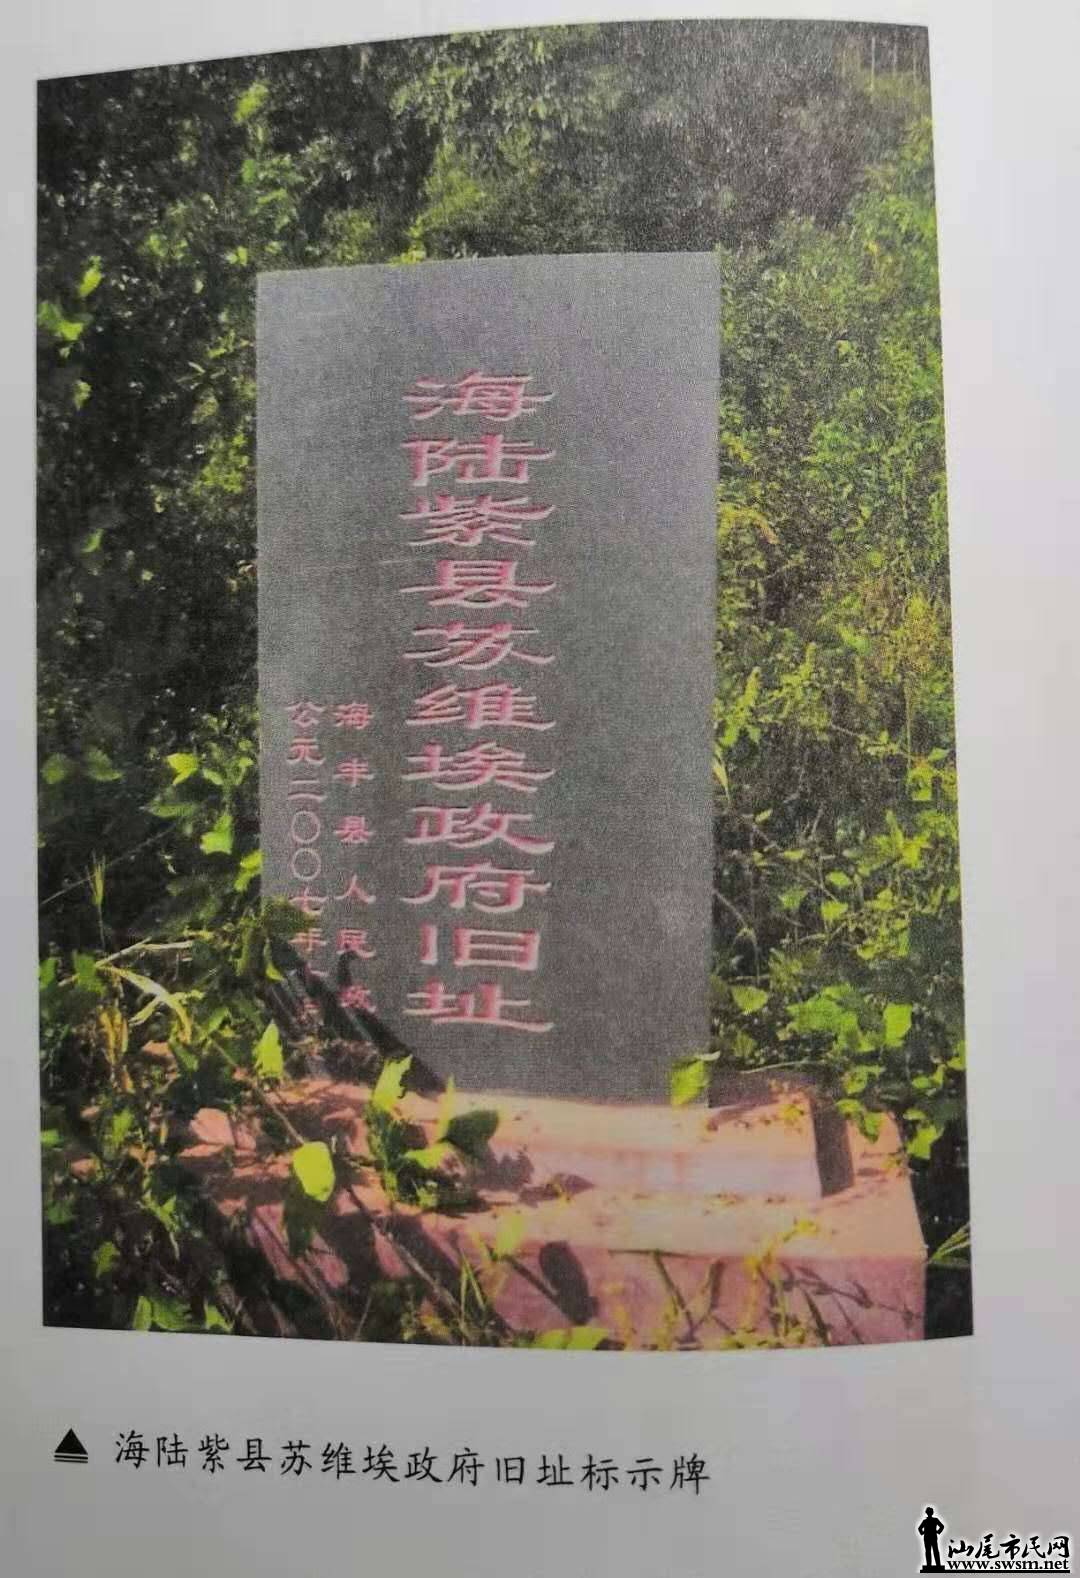 海陆紫县苏维埃政府旧址
海丰县人民政
公元二〇〇七年
海陆紫县苏维埃政府旧址标示牌
汕尾市民网
www.swsm.net